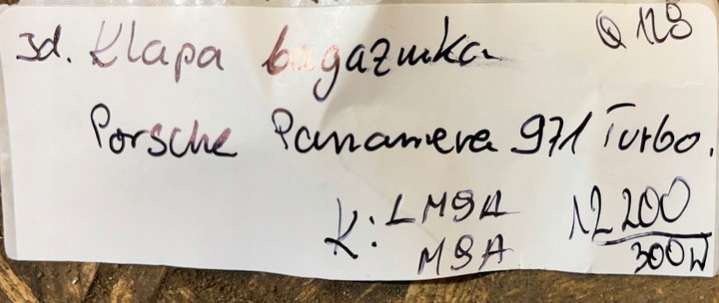 3d. Klapa bagaznika Q 128
Porsche Panamera 971 Turbo.
K: LM9A 12 200
M9A 300W